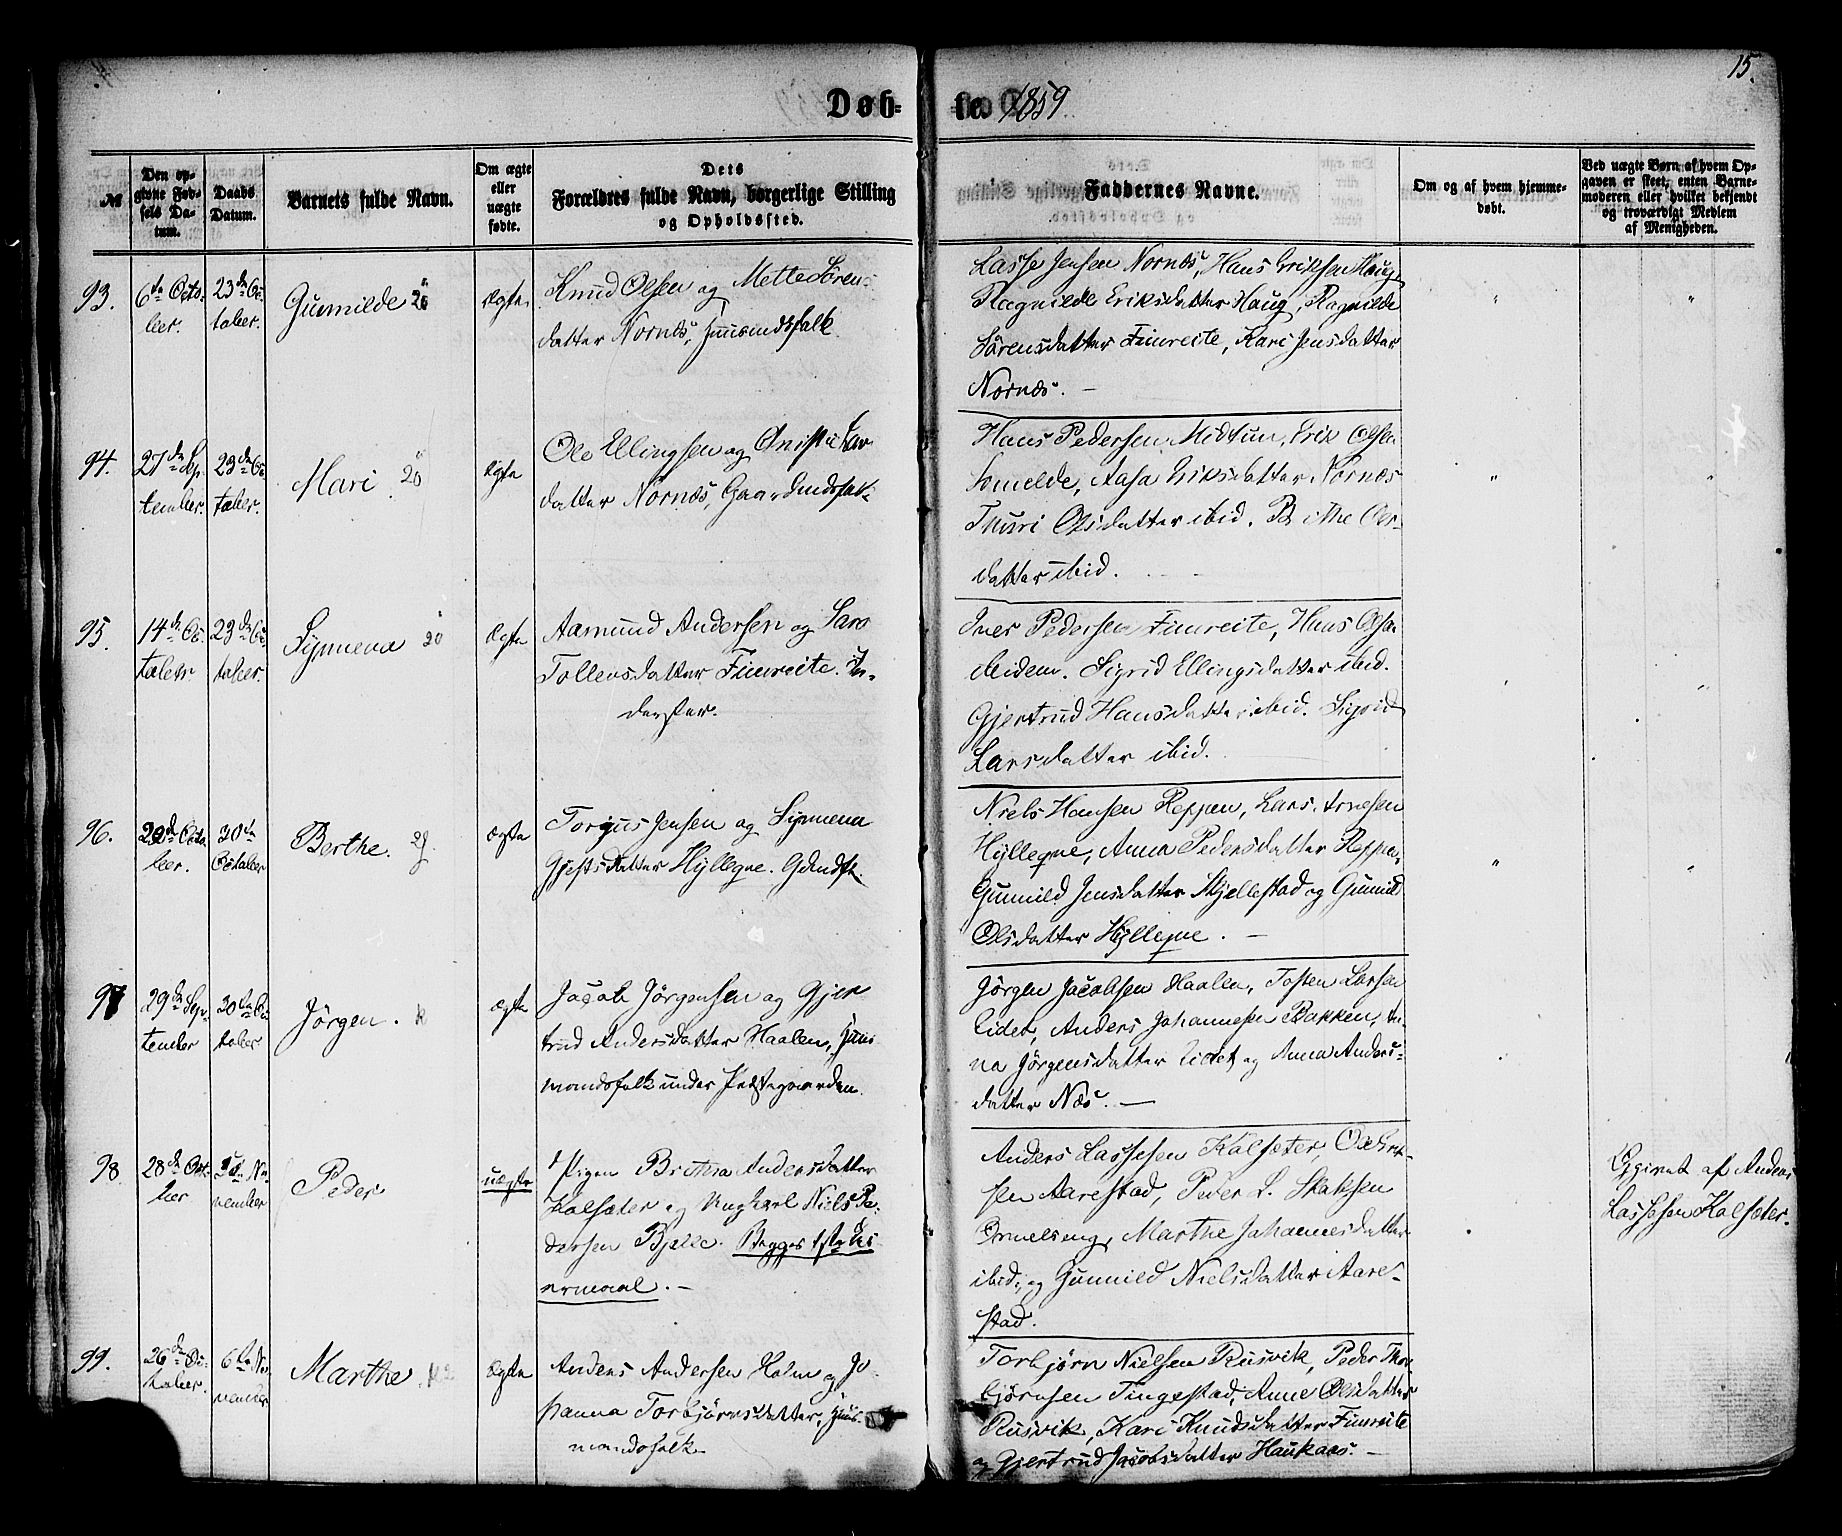 15.
Døb-
te. 1859.
№
Den op-
givne Fød-
sels Da-
tum.
Daabs
Datum.
Barnets fulde Navn.
Om ægte
eller
uægte
fødte.
Dets
Forældres fulde Navn, borgerlige Stilling
og Opholdssted.
Faddernes Navne.
Om og af hvem hjemme-
døbt.
Ved uægte Børn af hvem Op-
gaven er skeet, enten Barne-
moderen eller hvilket bekjendt
og troværdigt Medlem
af Menigheden.
93.
6te Octo-
ber.
23de Oc-
tober.
Gunnilde
Ægte
Knud Olsen og Mette Sørens-
datter Nornæs, Huusmdsfolk
Lasse Jensen Nornæs, Hans Eriksen Haug,
Ragnilde Eriksdatter Haug, Ragnilde
Sørensdatter Fimreite, Kari Jensdatter
Nornæs. —
"
"
94.
27de Sep-
tember.
23de Oc-
tober.
Mari
Ægte
Ole Ellingsen og
datter Nornæs, Gaardmdsfolk
Hans Pedersen Midtun, Erik Olsen
Aasa Eriksdatter Nornæs
Thuri Olsdatter ibid. Brithe Ols-
datter ibid.
"
"
95.
14de Oc-
tober.
23de Oc-
tober.
Synneva
Ægte
Aamund Andersen og
Tollevsdatter Fimreite. In-
derster.
Iver Pedersen Fimreite, Hans Olsen
ibidem. Sigrid Ellingsdatter ibid.
Gjertrud Hansdatter ibid. Sigrid
Larsdatter ibid.
"
"
96.
Octo-
ber.
30te
October
Berthe.
Ægte
Torgus Jensen og Synneva
datter Hyllegne. Gdmdsf.
Niels Hansen Reppen, Lars Arnesen
Hyllegne, Anna Pedersdatter Reppen,
Gunnild Jensdatter Skjellestad og Gunnild
Olsdatter Hyllegne. —
"
"
97
29de Sep-
tember
30te Oc-
tober
Jørgen.
Ægte
Jacob Jørgensen og Gjer-
trud Andersdatter Haalen, Huus-
mandsfolk under Præstegaarden.
Jørgen Jacobsen Haalen, Tosten Larsen
Eidet, Anders Johannesen Bakken, An-
na Jørgensdatter Eidet og Anna Anders-
datter Næs. —
98
28de Oct-
ber
No-
vember
Peder
uægte
Pigen Brithva Andersdatter
Kalsæter og Ungkarl Niels Pe-
dersen Bjelle. Begges 1ste Lei-
ermaal. —
Anders Lassesen Kalsæter, Ole Erik-
sen Aarestad, Peder L.
Marthe Johannesdatter
ibid; og Gunnild Nielsdatter Aare-
stad.
Opgivet af Anders
Lassesen Kalsæter.
99.
26de Oc-
tober.
6te No-
vember
Marthe
Ægte
Anders Andersen Holm og Jo-
hanna Torbjørnsdatter, Huus-
mandsfolk
Torbjørn Nielsen Rusvik, Peder Thor-
bjørnsen Tingestad, Anne Olsdatter
Rusvik, Kari Knudsdatter Fimreite
og Gjertrud Jacobsdatter Haukaas. —